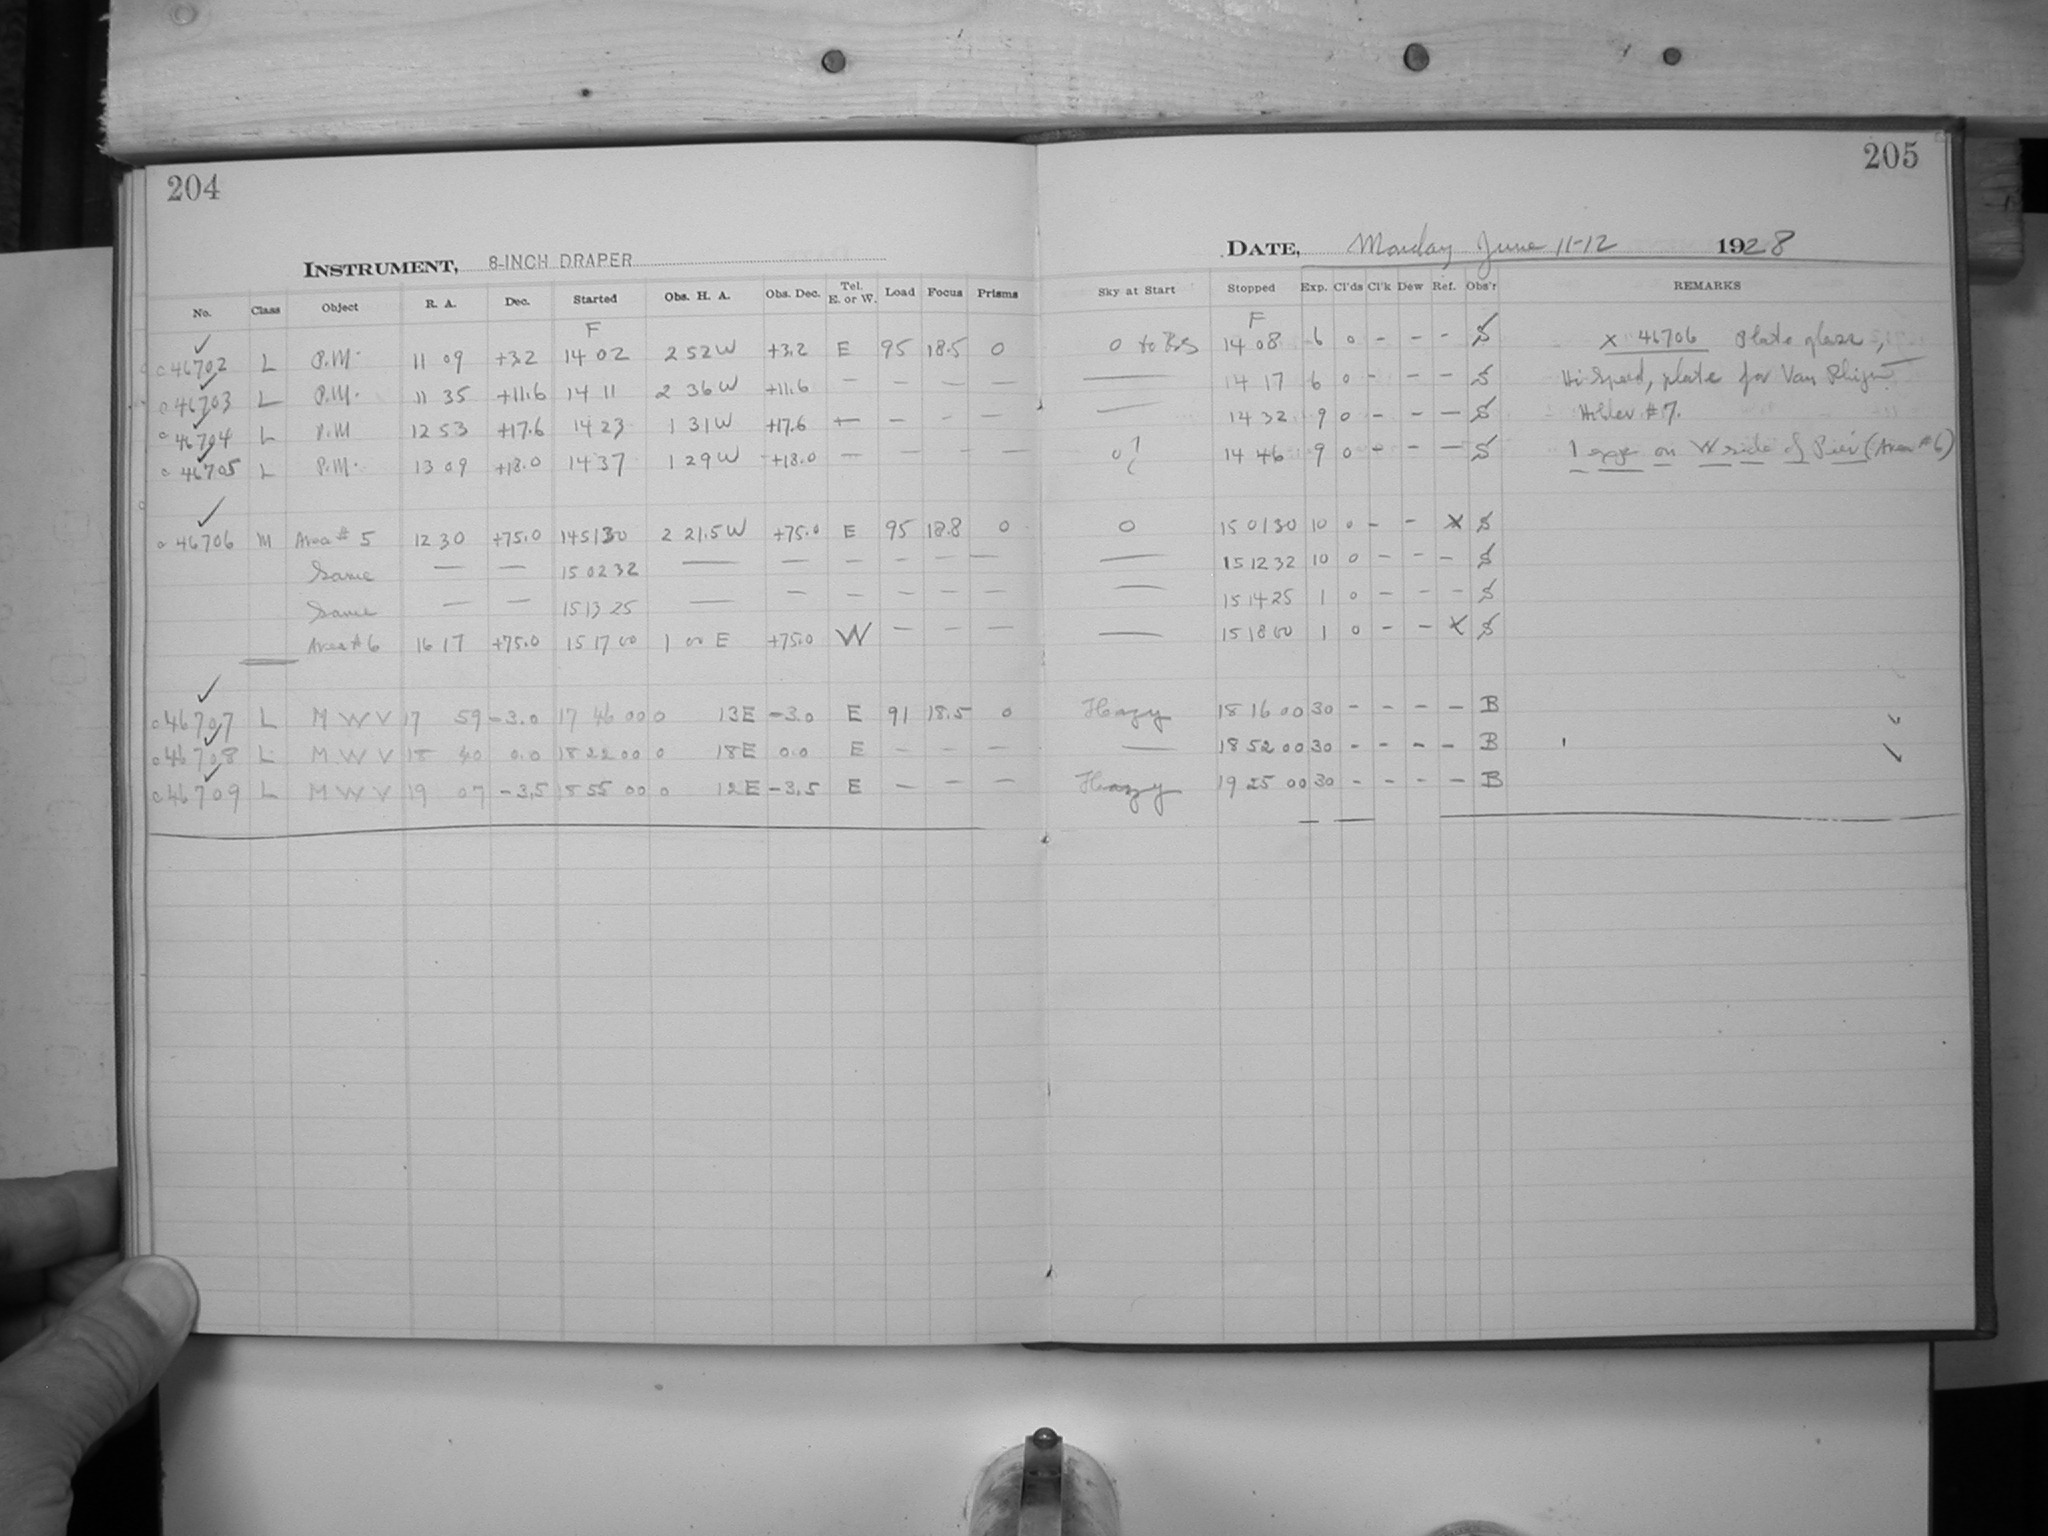 204
205
INSTRUMENT, 8-INCH DRAPER
DATE, Monday June 11-12 1928
No. Class Object R. A. Dec. Started Obs. H. A. Obs. Dec. Tel. E. or W. Load Focus Prisms Sky at Start Stopped Exp. Cl'ds Cl'k Dew Ref. Obs'r REMARKS
F F
46702 L P.M. 11 09 +3.2 14 02 2 52 W +3.2 E 95 18.5 0 0 to 14 08 6 0 - - - S x 46706 Plate glass,
46703 L P.M. 11 35 +11.6 14 11 2 36 W +11.6 — — — — — 14 17 6 0 - - - S Hi Speed, plate for Van Rhijn
46704 L P.M 12 53 +17.6 14 23 1 31 W +17.6 — — — — — 14 32 9 0 - - — S Holder #7.
46705 L P.M. 13 09 +18.0 14 37 1 29 W +18.0 — — — — 0? 14 46 9 0 - - — S 1 expr on W side of Pier (Area #6)
46706 M Area # 5 12 30 +75.0 14 51 30 2 21.5 W +75.0 E 95 18.8 0 0 15 01 30 10 0 - - x S
Same — — 15 02 32 — — — — — — — 15 12 32 10 0 - - - S
Same — — 15 13 25 — — — — — — — 15 14 25 1 0 - - - S
Area #6 16 17 +75.0 15 17 00 1 00 E +75.0 W — — — — 15 18 00 1 0 - - x S
46707 L M W V 17 59 -3.0 17 46 00 0 13E -3.0 E 91 18.5 0 Hazy 18 16 00 30 - - - - B
46708 L M W V 18 40 0.0 18 22 00 0 18E 0.0 E — — — — 18 52 00 30 - - - - B
46709 L M W V 19 07 -3.5 18 55 00 0 12E -3.5 E — — — Hazy 19 25 00 30 - - - - B